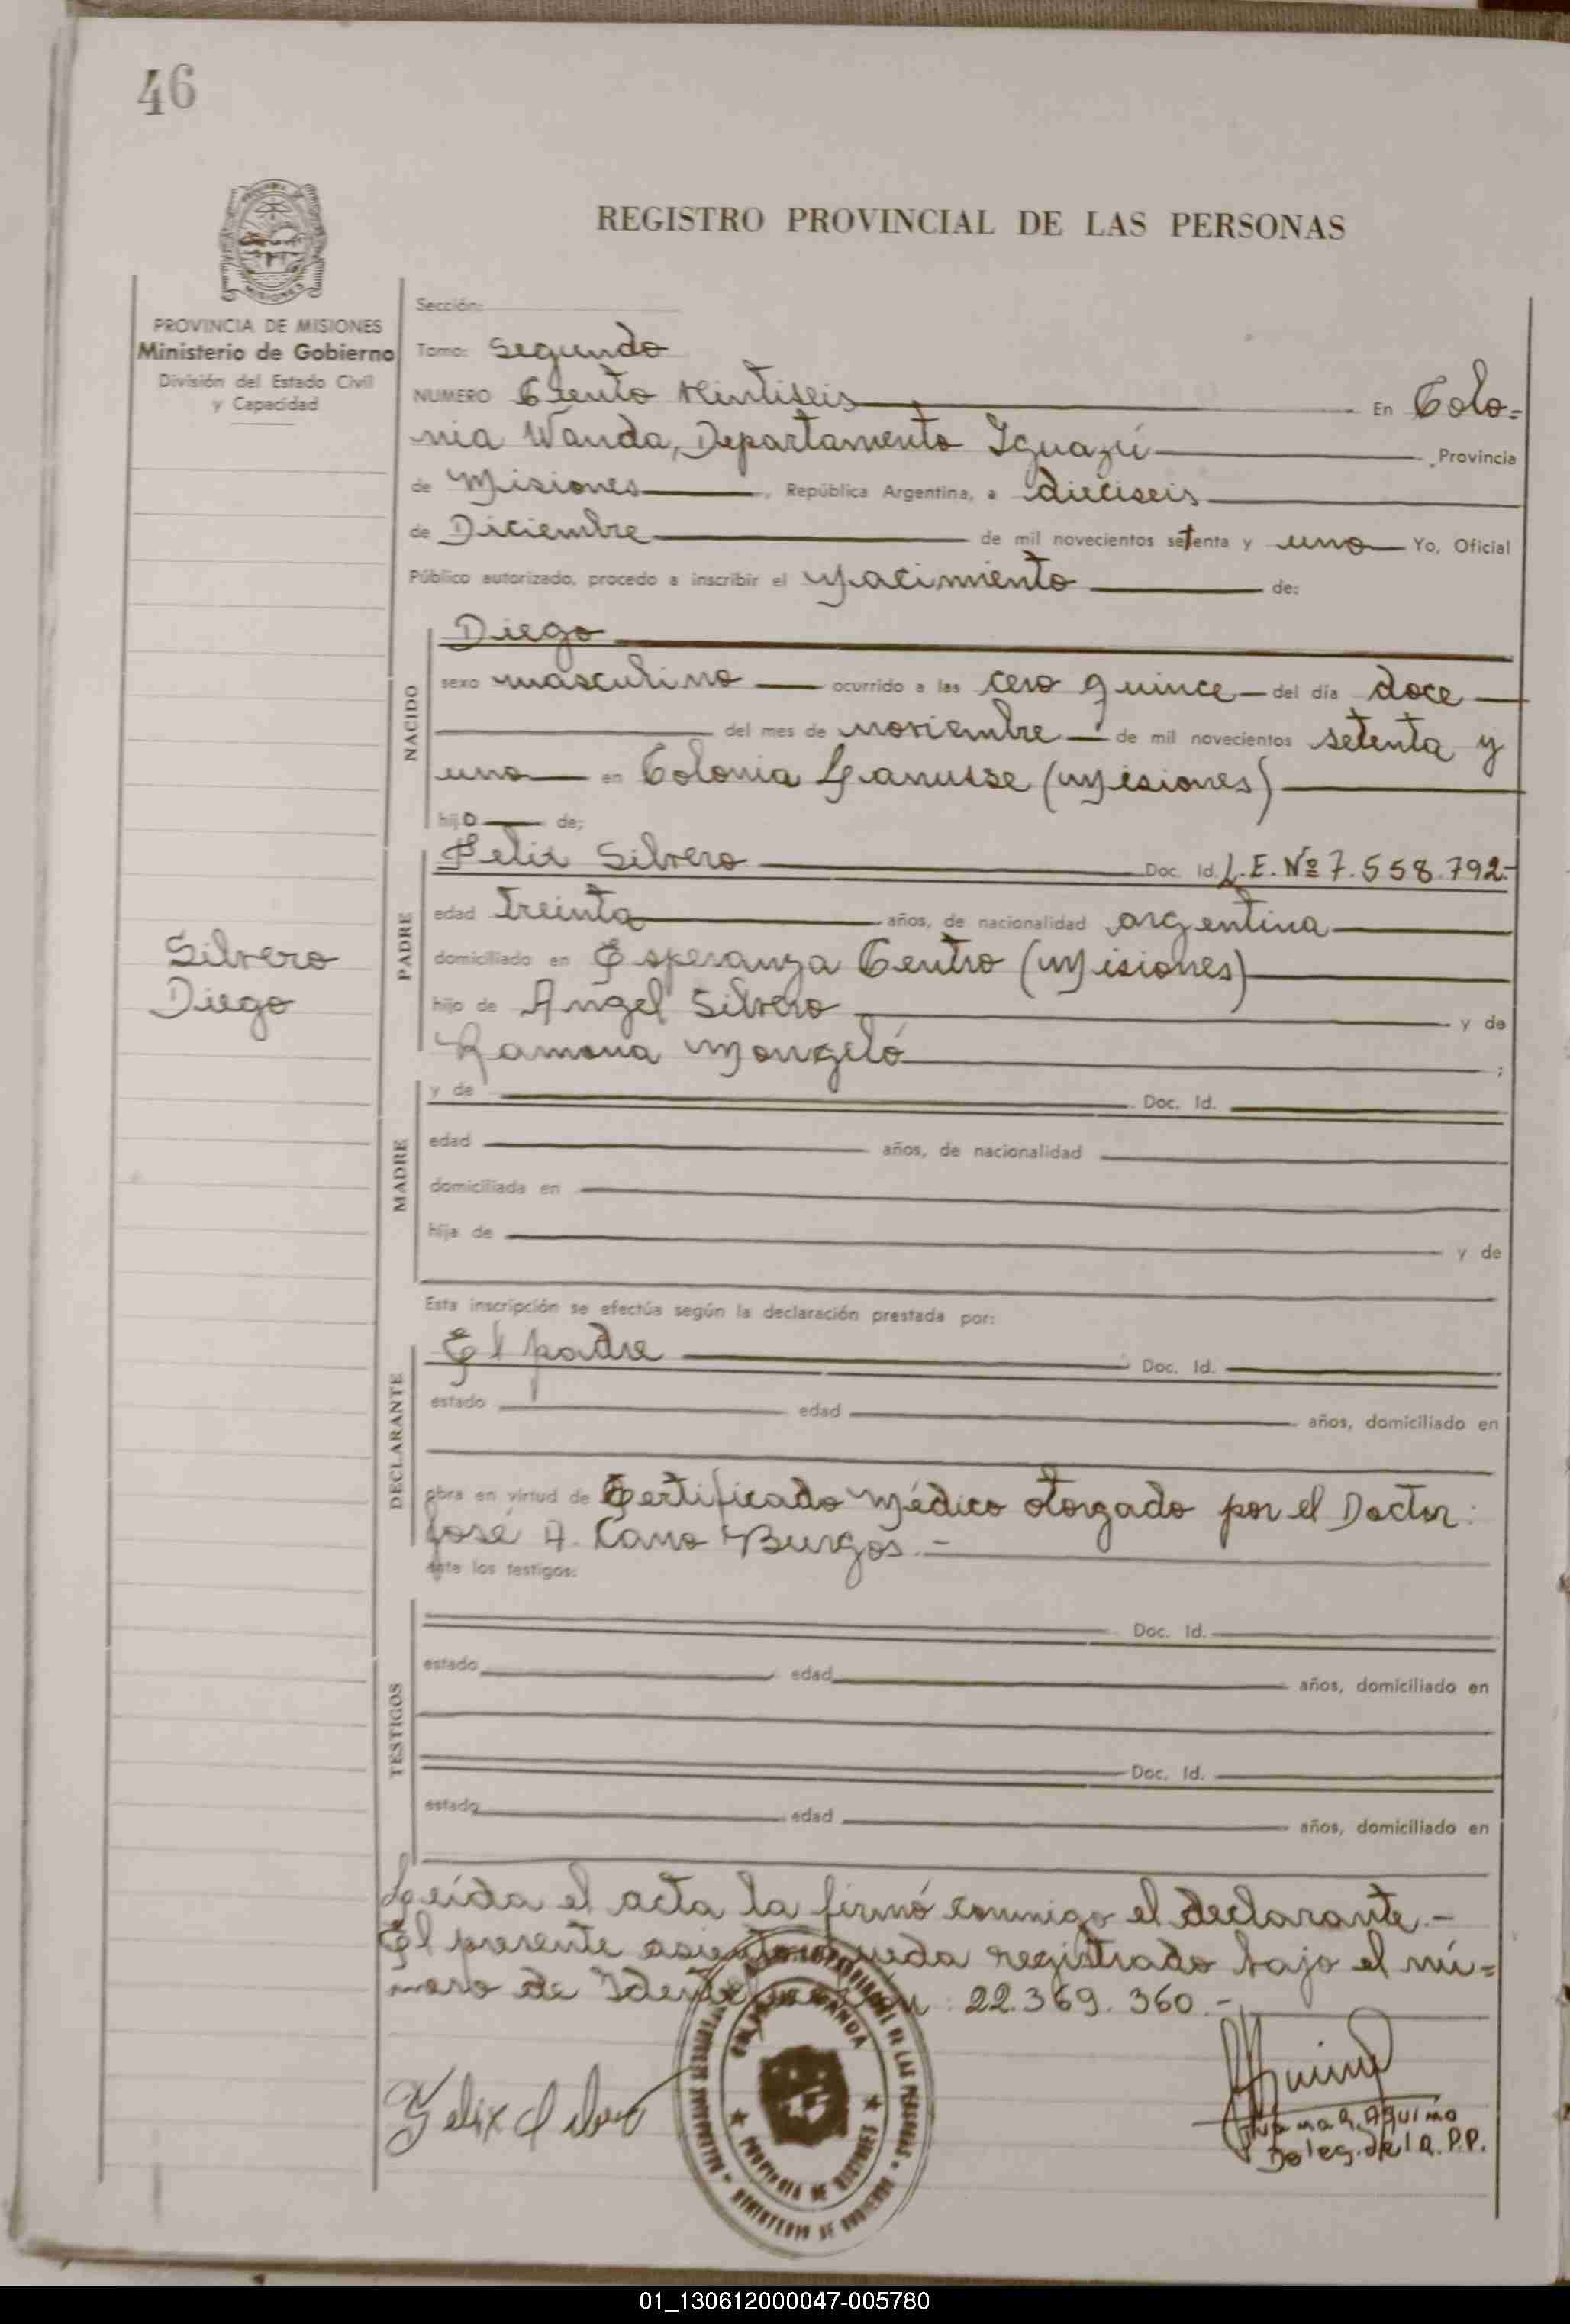 46
REGISTRO PROVINCIAL DE LAS PERSONAS
MISIONES
PROVINCIA DE MISIONES
Ministerio de Gobierno
División del Estado Civil
y Capacidad
Sección:
Tomo: Segundo
NUMERO Ciento veintiseis En Colo=
nia Wanda, Departamento Iguazú , Provincia
de Misiones , República Argentina, a dieciseis
de Diciembre de mil novecientos setenta y uno Yo, Oficial
Público autorizado, procedo a inscribir el Nacimiento de:
NACIDO
Diego
sexo masculino ocurrido a las cero quince del día doce
del mes de noviembre de mil novecientos setenta y
uno en Colonia Lanusse (Misiones)
hijo de;
PADRE
Felix Silvero Doc. Id. L.E. Nº 7.558.792.-
edad Treinta años, de nacionalidad argentina
domiciliado en Esperanza Centro (Misiones)
hijo de Angel Silvero y de
Ramona Mongeló ;
Silvero
Diego
MADRE
y de Doc. Id.
edad años, de nacionalidad
domiciliada en
hija de y de
Esta inscripción se efectúa según la declaración prestada por:
DECLARANTE
El padre Doc. Id.
estado edad años, domiciliado en
obra en virtud de Certificado Médico otorgado por el Doctor:
José A. Cano Burgos.-
ante los testigos:
TESTIGOS
Doc. Id.
estado edad años, domiciliado en
Doc. Id.
estado edad años, domiciliado en
Leída el acta la firmó conmigo el declarante.-
El presente asiento queda registrado bajo el nú=
mero de Identificación: 22.369.360.-
Felix Silvero
Aquino
Deleg. del R.P.P.
COLONIA WANDA
PROVINCIA DE MISIONES
MINISTERIO DE GOBIERNO
01_130612000047-005780